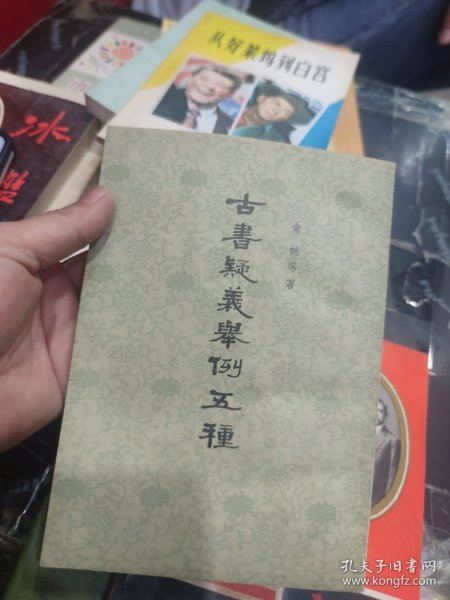 从好莱坞到白宫
冰
鉴
古書疑義舉例五種
俞樾等著
孔夫子旧书网
www.kongfz.com